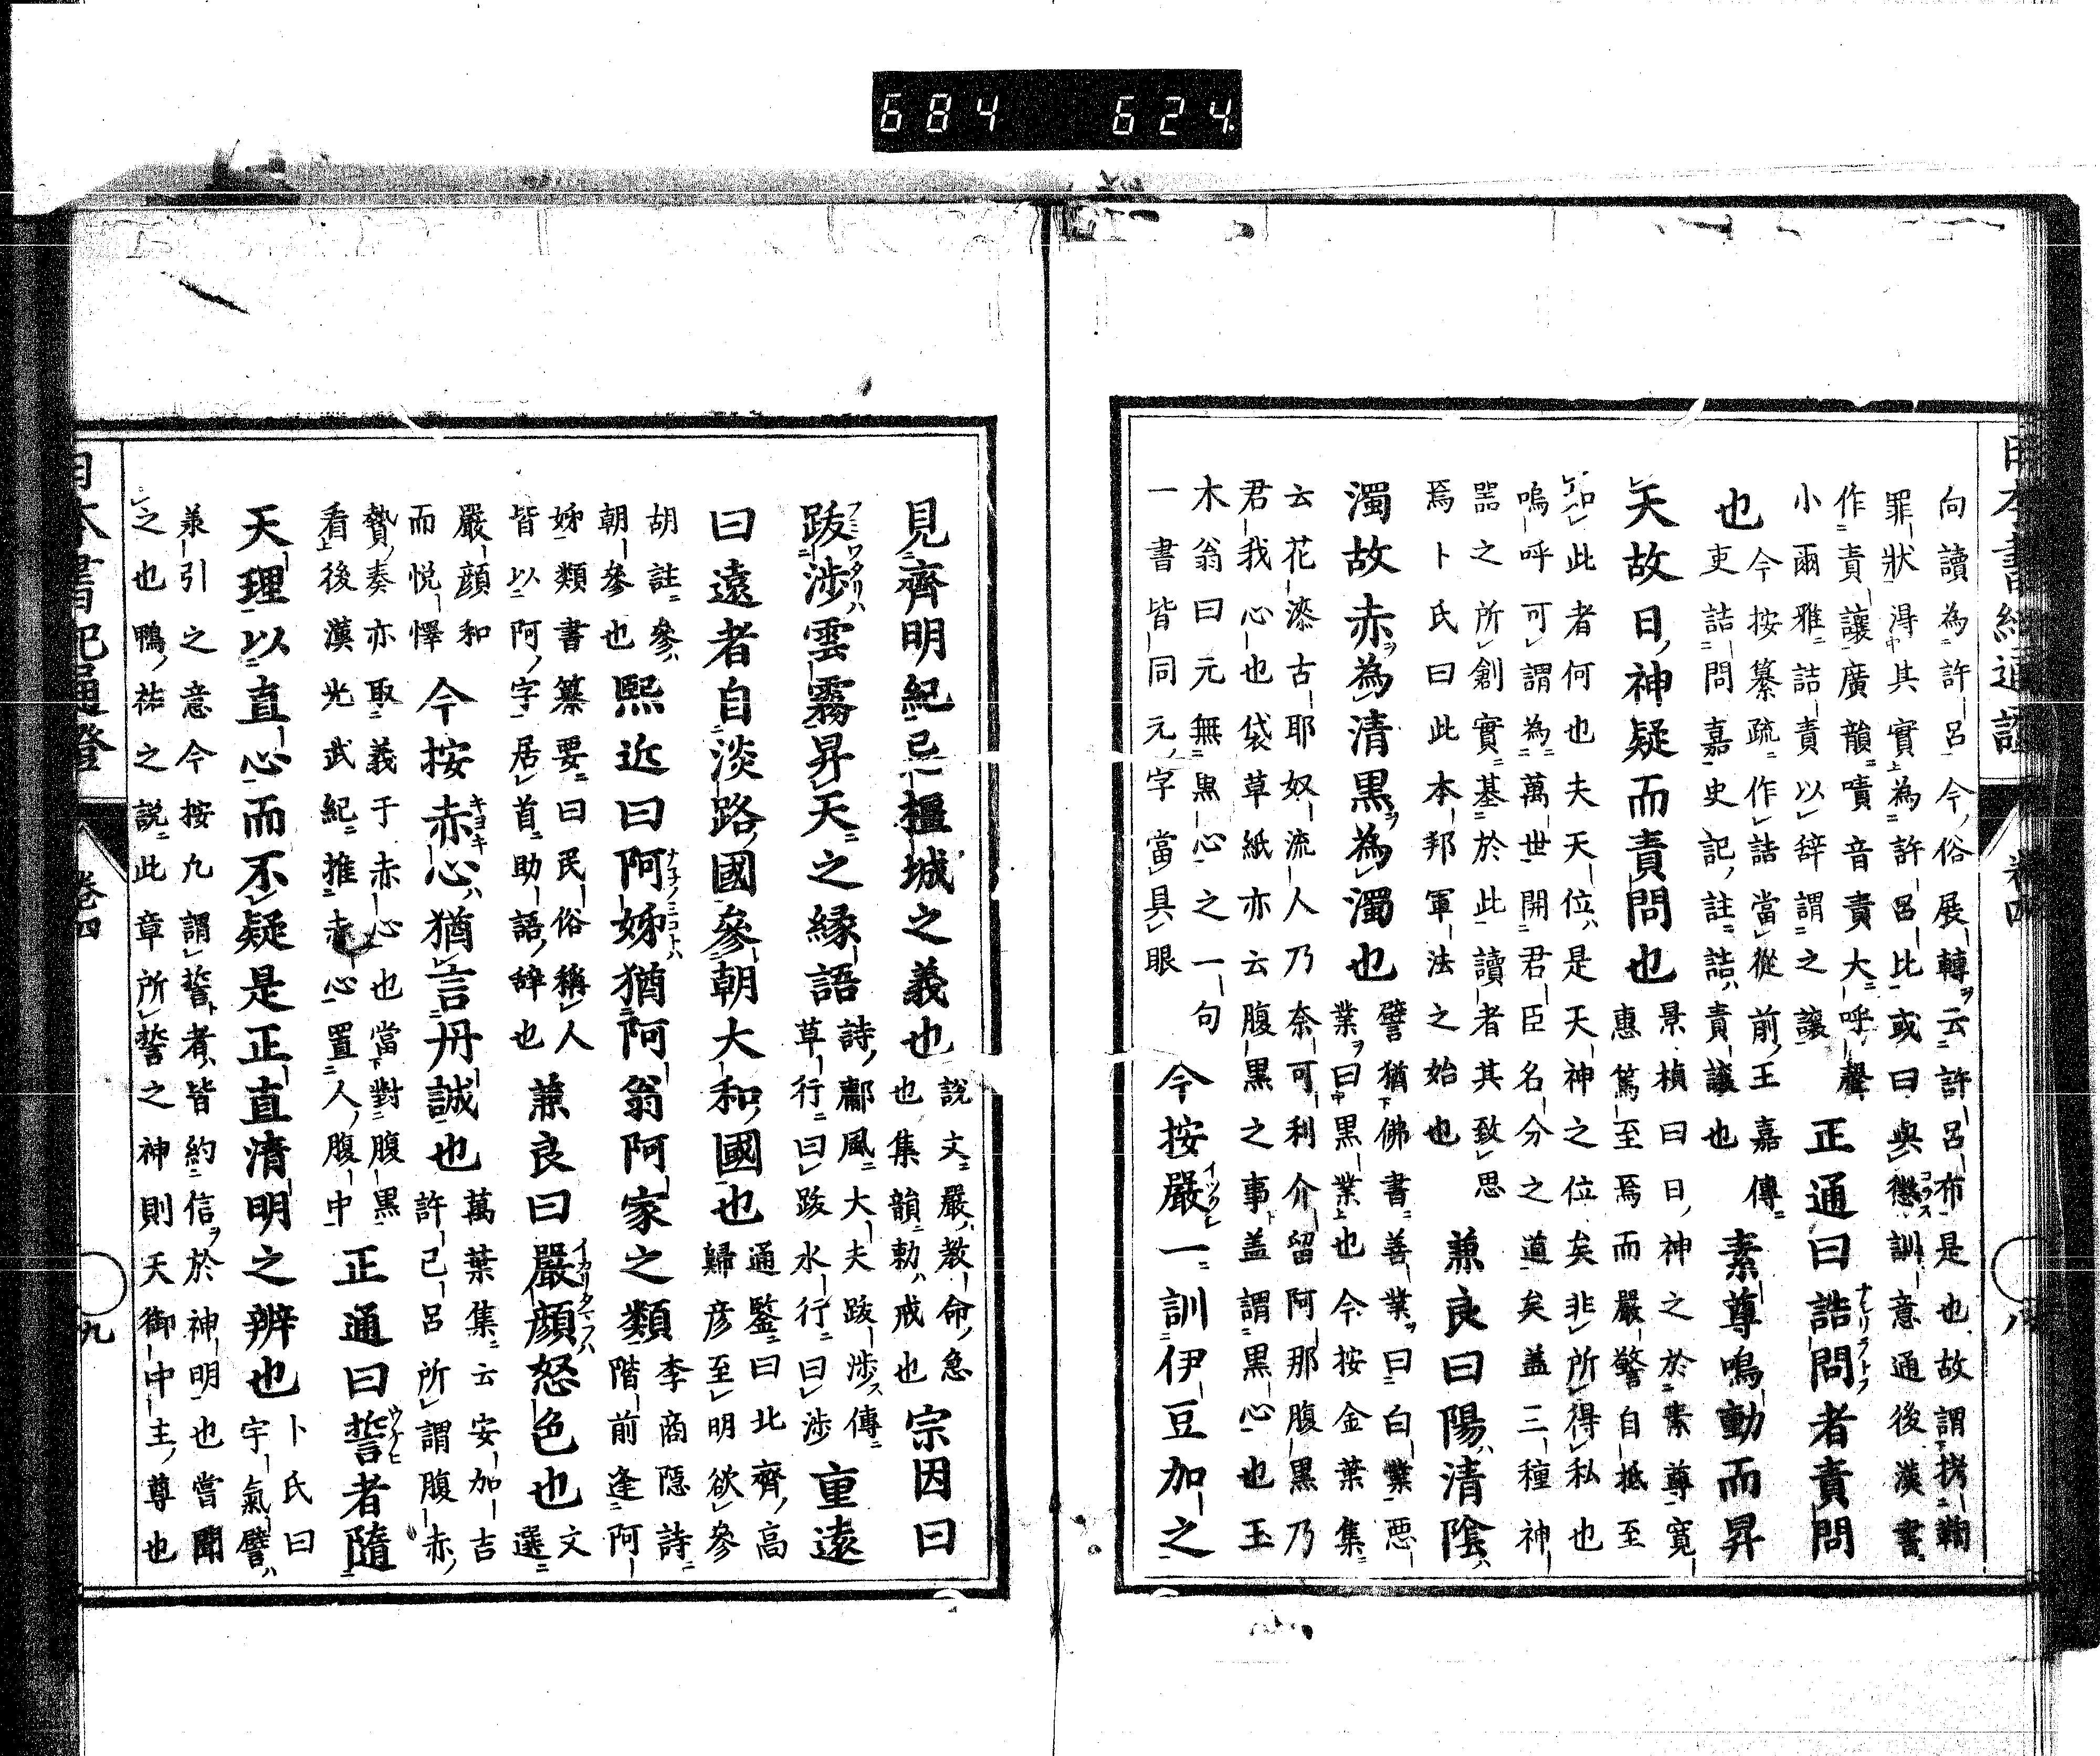 684 624
日本書紀通證 卷四 八
向讀為許呂今俗展轉云許呂布是也故謂拷鞫
罪狀得其實為許呂比或曰與懲訓意通後漢書
作責讓廣韻嘖音責大呼聲
小爾雅詰責以辞謂之讓
正通曰誥問者責問
也
今按纂疏作詰當從前王嘉傳
吏詰問嘉史記註詰責讓也
素尊鳴動而昇
天故日神疑而責問也
景楨曰日神之於素尊寛
惠篤至焉而嚴警自抵至
知此者何也夫天位是天神之位矣非所得私也
嗚呼可謂為萬世開君臣名分之道矣蓋三種神
噐之所創實基於此讀者其致思
焉卜氏曰此本邦軍法之始也
兼良曰陽清陰
濁故赤為清黒為濁也
譬猶佛書善業曰白業悪
業曰黒業也今按金葉集
云花漆古耶奴流人乃奈可利介留阿那腹黒乃
君我心也袋草紙亦云腹黒之事盖謂黒心也玉
木翁曰元無黒心之一句
一書皆同元字當具眼
今按嚴一訓伊豆加之
見齊明紀忌𣝅城之義也
說文嚴教命急
也集韻勅戒也
宗因曰
跋渉雲霧昇天之縁語
詩鄘風大夫跋渉傳
草行曰跋水行曰渉
重遠
曰遠者自淡路國參朝大和國也
通鑒曰北齊高
歸彦至明欲參
胡註參
朝參也
熙近曰阿姊猶阿翁阿家之類
李商隠詩
階前逢阿
姊類書纂要曰民俗稱人
皆以阿字居首助語辞也
兼良曰嚴顔怒色也
文
選
嚴顔和
而悦懌
今按赤心猶言丹誠也
萬葉集云安加吉
許己呂所謂腹赤
贄奏亦取義于赤心也當對腹黒
看後漢光武紀推赤心置人腹中
正通曰誓者隨
天理以直心而不疑是正直清明之辨也
卜氏曰
宇氣譬
兼引之意今按九謂誓者皆約信於神明也嘗聞
之也鴨祐之説此章所誓之神則天御中主尊也
日本書紀通證 卷四 九